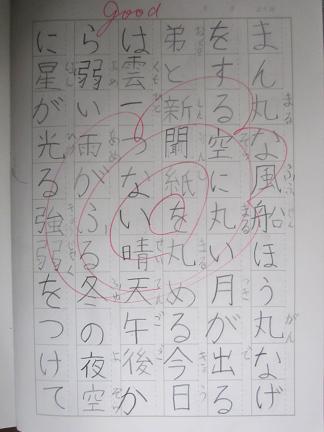 good
まん丸な風船ほう丸なげ
をする空に丸い月が出る
弟と新聞紙を丸める今日
は雲一つない晴天午後か
ら弱い雨がふる冬の夜空
に星が光る強弱をつけて